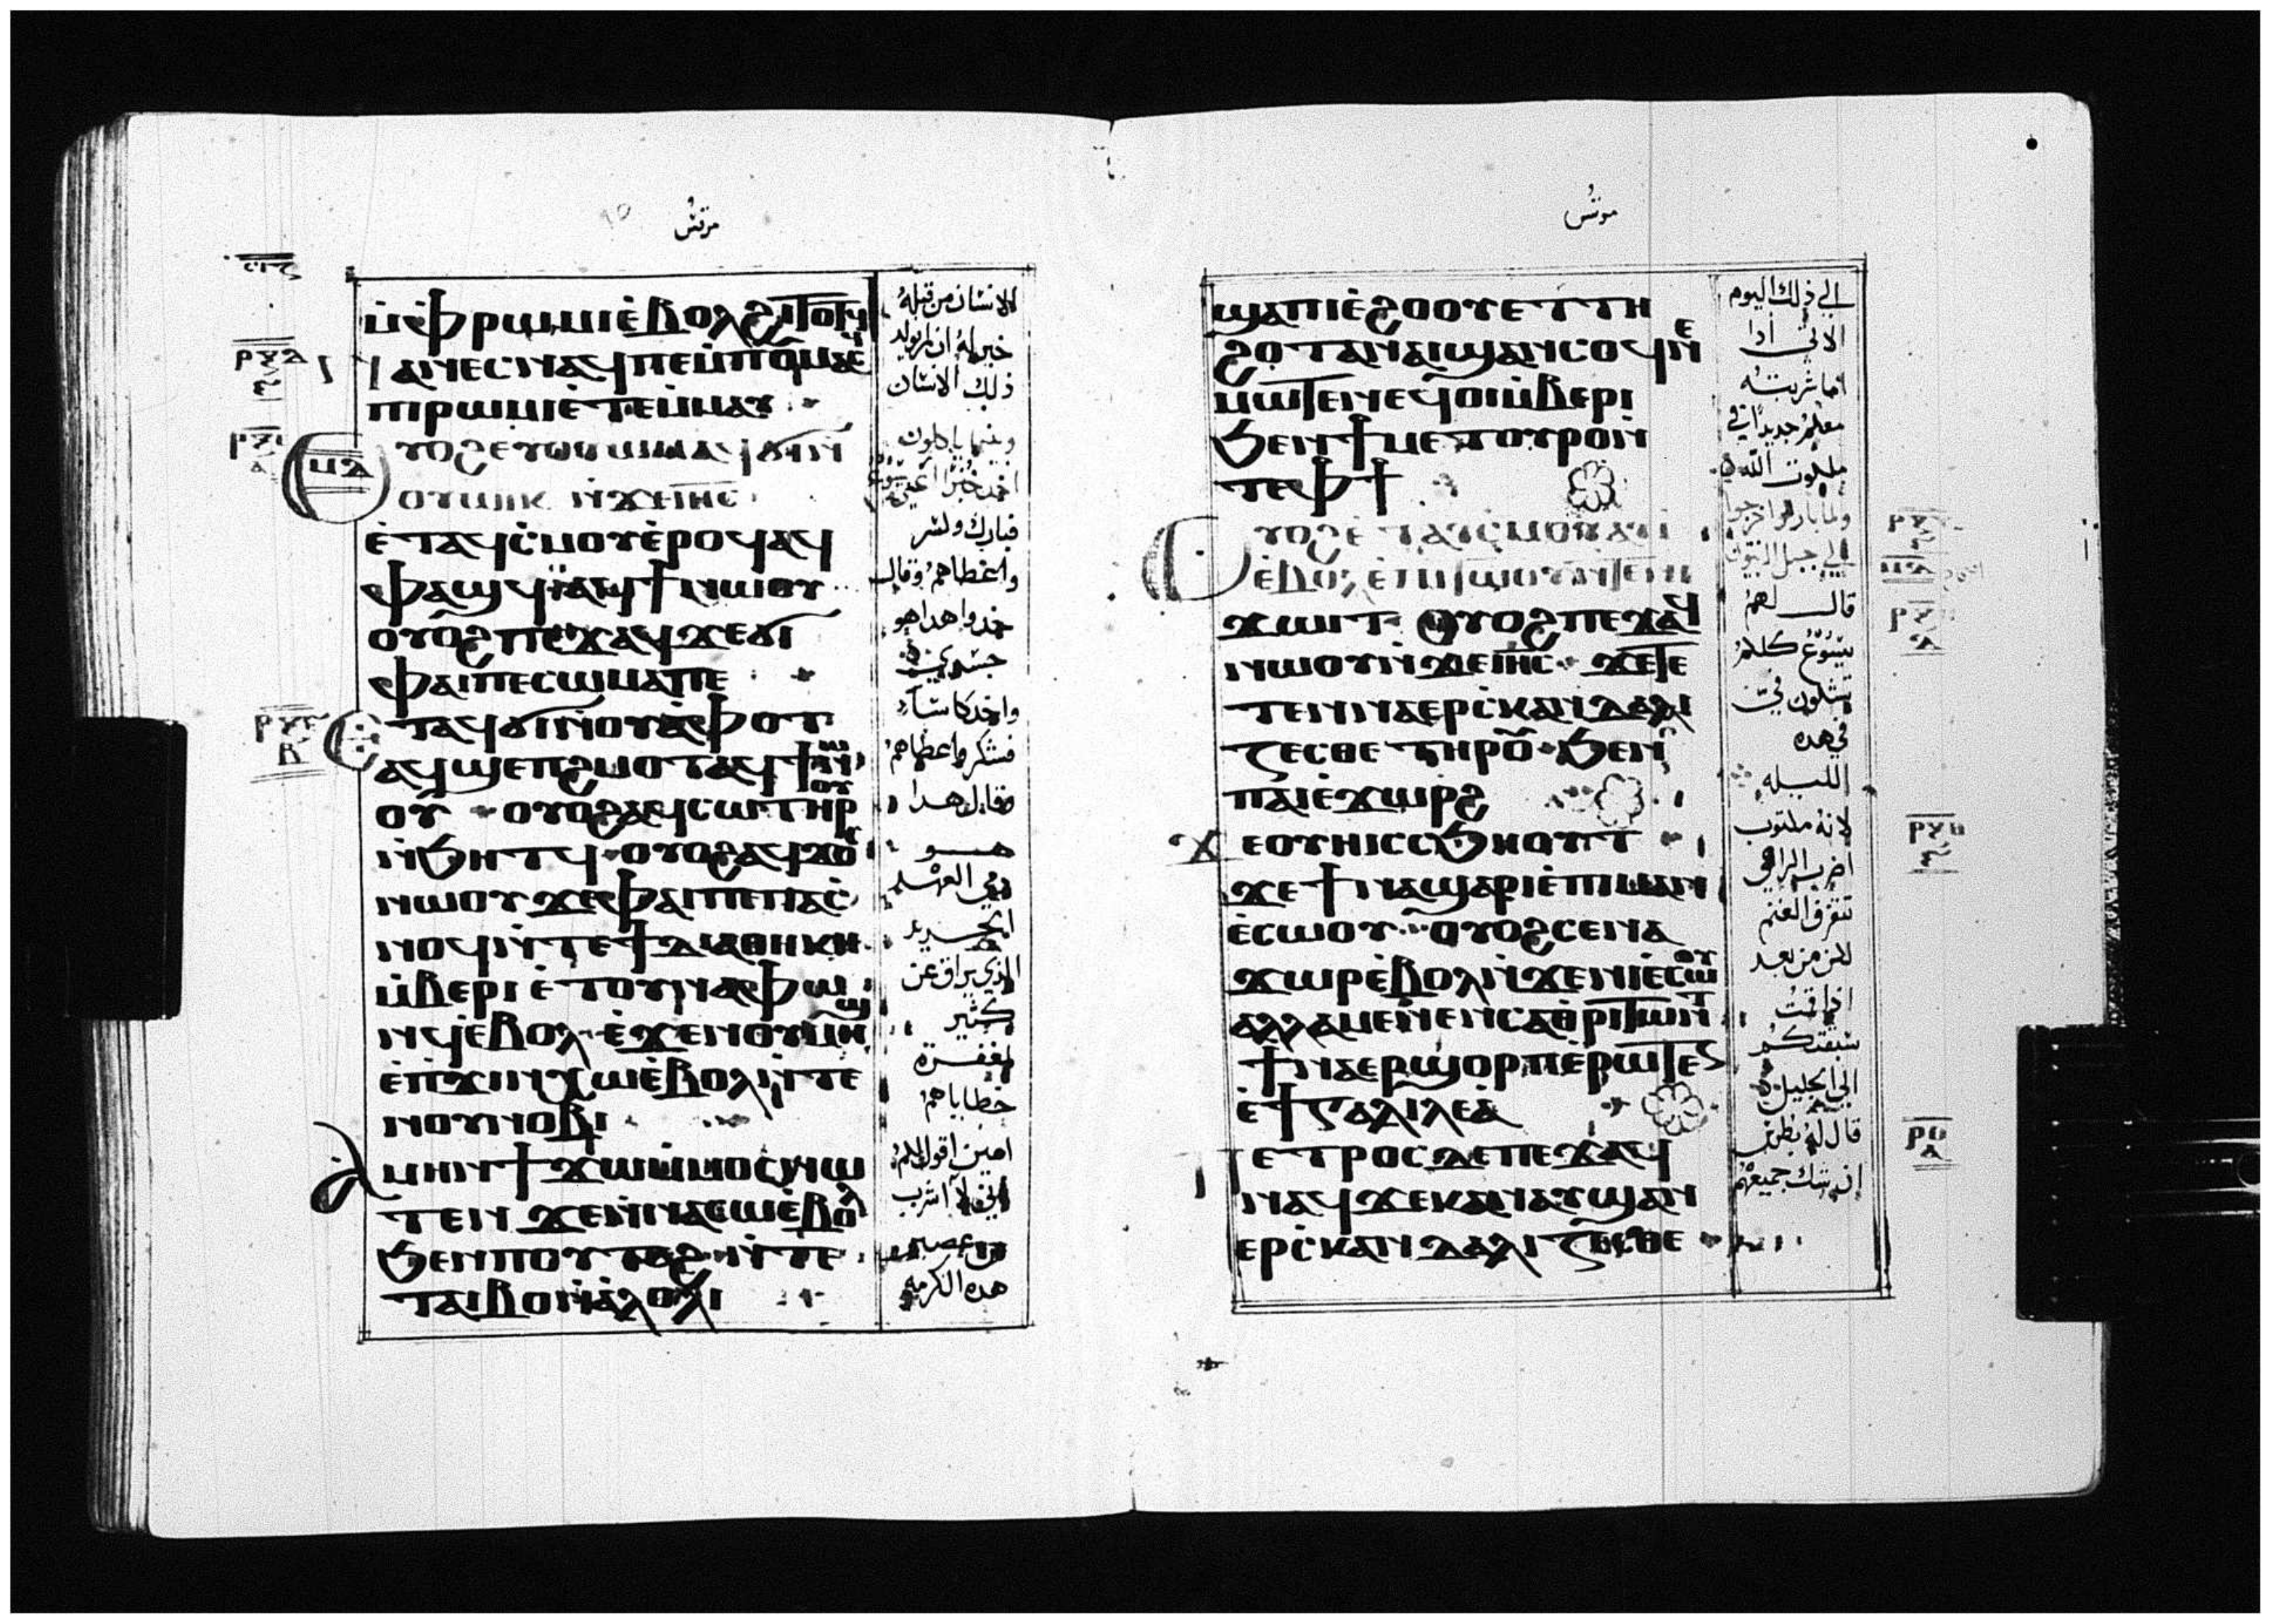 مرقس
ⲙ̀ⲫⲣⲱⲙⲓ ⲉ̀ⲃⲟⲗ ϩⲓⲧⲟⲧϥ
ⲛⲁⲛⲉⲥ ⲛⲁϥ ⲡⲉ ⲙ̀ⲡⲟⲩⲙⲁⲥ
ⲡⲓⲣⲱⲙⲓ ⲉ̀ⲧⲉⲙ̀ⲙⲁⲩ
ⲟⲩⲟϩ ⲉⲩⲟⲩⲱⲙ ⲁϥϭⲓ ⲛ̀
ⲟⲩⲱⲓⲕ ⲛ̀ϫⲉ ⲓⲏⲥ
ⲉ̀ⲧⲁϥⲥ̀ⲙⲟⲩ ⲉ̀ⲣⲟϥ ⲁϥ
ⲫⲁϣϥ ⲁϥϯ ⲛⲱⲟⲩ
ⲟⲩⲟϩ ⲡⲉϫⲁϥ ϫⲉ ϭⲓ
ⲫⲁⲓ ⲡⲉ ⲥⲱⲙⲁ ⲡⲉ
ⲉⲧⲁϥϭⲓ ⲛ̀ⲟⲩⲁ̀ⲫⲟⲧ
ⲁϥϣⲉⲡϩⲙⲟⲧ ⲁϥϯ ⲛⲱ
ⲟⲩ ⲟⲩⲟϩ ⲁⲩⲥⲱ ⲧⲏⲣⲟⲩ
ⲛ̀ϧⲏⲧϥ ⲟⲩⲟϩ ⲁϥϫⲟⲥ
ⲛⲱⲟⲩ ϫⲉ ⲫⲁⲓ ⲡⲉ ⲡⲁⲥ̀
ⲛⲟϥ ⲛ̀ⲧⲉ ϯⲇⲓⲁⲑⲏⲕⲏ
ⲙ̀ⲃⲉⲣⲓ ⲉ̀ⲧⲟⲩⲛⲁⲫⲱ
ⲛϥ ⲉ̀ⲃⲟⲗ ⲉ̀ϫⲉⲛ ⲟⲩⲙⲏϣ
ⲉ̀ⲡϫⲓⲛⲭⲱ ⲉ̀ⲃⲟⲗ ⲛ̀ⲧⲉ
ⲛⲟⲩⲛⲟⲃⲓ
ⲁⲙⲏⲛ ϯϫⲱ ⲙ̀ⲙⲟⲥ ⲛⲱ
ⲧⲉⲛ ϫⲉ ⲛ̀ⲛⲁⲥⲱ ⲉ̀ⲃⲟⲗ
ϧⲉⲛ ⲡⲟⲩⲧⲁϩ ⲛ̀ⲧⲉ
ⲧⲁⲓⲃⲱ ⲛ̀ⲁ̀ⲗⲟⲗⲓ
الانسان من قبله
خير له ان لم يولد
ذلك الانسان
وبينما ياكلون
اخد خبزا يسوع
فبارك وكسر
واعطاهم وقال
خدوا هدا هو
جسدي
واخد كاسا
فشكر واعطاهم
وقال هدا
هو
دمي العهد
الجديد
الذي يراق عن
كثير
لمغفرة
خطاياهم
امين اقول لكم
اني لا اشرب
من عصير
هده الكرمه
مرقس
ϣⲁ ⲡⲓⲉ̀ϩⲟⲟⲩ ⲉⲧⲧⲏ
ϩⲟⲧⲁⲛ ⲁⲓϣⲁⲛⲥⲟϥ ⲛⲉ
ⲙⲱⲧⲉⲛ ⲉϥⲟⲓ ⲙ̀ⲃⲉⲣⲓ
ϧⲉⲛ ϯⲙⲉⲧⲟⲩⲣⲟ ⲛ̀
ⲧⲉ ⲫϯ
ⲟⲩⲟϩ ⲉ̀ⲧⲁⲩⲥ̀ⲙⲟⲩ ⲁⲩⲓ̀
ⲉ̀ⲃⲟⲗ ⲉ̀ⲡⲓⲧⲱⲟⲩ ⲛ̀ⲧⲉ ⲛⲓ
ϫⲱⲓⲧ ⲟⲩⲟϩ ⲡⲉϫⲁϥ
ⲛⲱⲟⲩ ⲛ̀ϫⲉ ⲓⲏⲥ ϫⲉ ⲧⲉ
ⲧⲉⲛⲛⲁⲉⲣⲥ̀ⲕⲁⲛⲇⲁⲗⲓ
ⲍⲉⲥⲑⲉ ⲧⲏⲣⲟⲩ ϧⲉⲛ
ⲡⲁⲓⲉ̀ϫⲱⲣϩ
ϫⲉ ⲟⲩⲏⲓ ⲥⲥϧⲏⲟⲩⲧ
ϫⲉ ϯⲛⲁϣⲁⲣⲓ ⲉ̀ⲡⲓⲙⲁⲛ
ⲉ̀ⲥⲱⲟⲩ ⲟⲩⲟϩ ⲥⲉⲛⲁ
ϫⲱⲣ ⲉ̀ⲃⲟⲗ ⲛ̀ϫⲉ ⲛⲓⲉ̀ⲥⲱⲟⲩ
ⲁⲗⲗⲁ ⲙⲉⲛⲉⲛⲥⲁ ⲑⲣⲓⲧⲱⲛⲧ
ϯⲛⲁⲉⲣϣⲟⲣⲡ ⲉ̀ⲣⲱⲧⲉⲛ
ⲉ̀ϯⲅⲁⲗⲓⲗⲉⲁ̀
ⲡⲉⲧⲣⲟⲥ ⲇⲉ ⲡⲉϫⲁϥ
ⲛⲁϥ ϫⲉ ⲕⲁⲛ ⲁⲩϣⲁⲛ
ⲉⲣⲥ̀ⲕⲁⲛⲇⲁⲗⲓⲍⲉⲥⲑⲉ
الي ذلك اليوم
الاتي ادا
اما شربته
معكم جديدا في
ملكوت الله
ولما باركوا خرجوا
الي جبل الزيتون
قال لهم
يسوع كلكم
تشكون في
في هده
الليله
لانه مكتوب
اضرب الراعي
تتفرق الغنم
لكن من بعد
اذا قمت
سبقتكم
الي الجليل
قال له بطرس
ان شك جميعهم